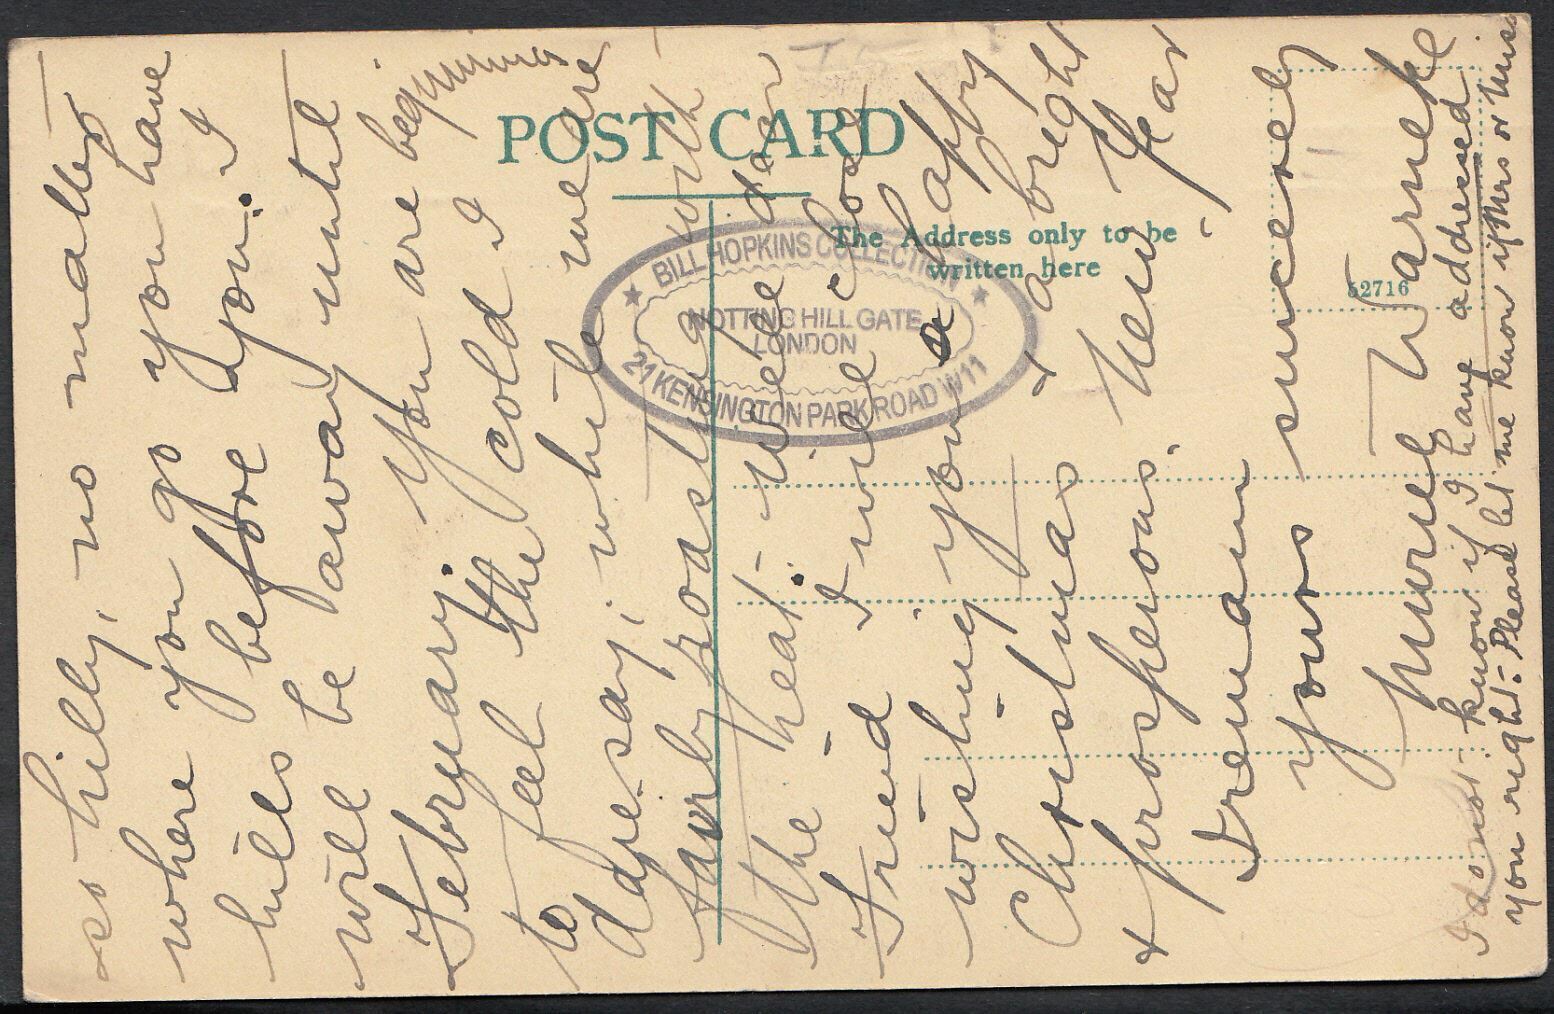 so hilly, no matter
where you go you have
hills before you. I
will be away until
February. You are beginning
to feel the cold I
daresay, while we are
fairly roasting with
the heat. Well dear
Friend I will close
wishing you a happy
Christmas & a bright
& prosperous New Year
I remain
yours sincerely
Muriel Warnke
I do not know if I have addressed
you right. Please let me know if Mrs or Miss
POST CARD
The Address only to be
written here
52716
BILL HOPKINS COLLECTION
NOTTING HILL GATE
LONDON
21 KENSINGTON PARK ROAD W11